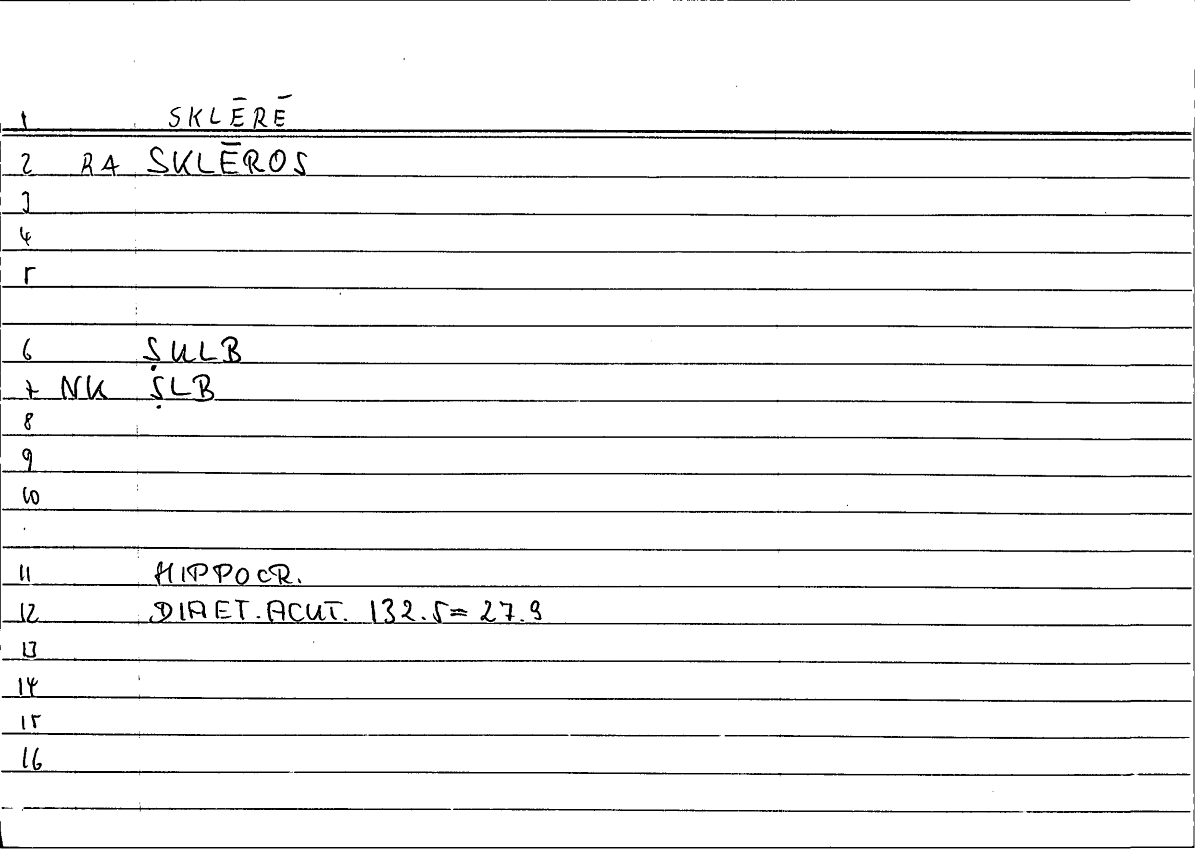 1 SKLĒRĒ
2 RA SKLĒROS
3
4
5
6 ṢULB
7 NK ṢLB
8
9
10
11 HIPPOCR.
12 DIAET. ACUT. 132.5 = 27.9
13
14
15
16